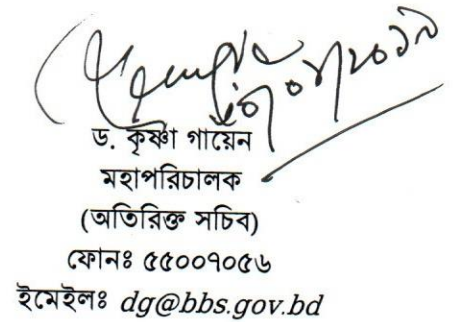 ড. কৃষ্ণা গায়েন
মহাপরিচালক
(অতিরিক্ত সচিব)
ফোনঃ ৫৫০০৭০৫৬
ইমেইলঃ dg@bbs.gov.bd